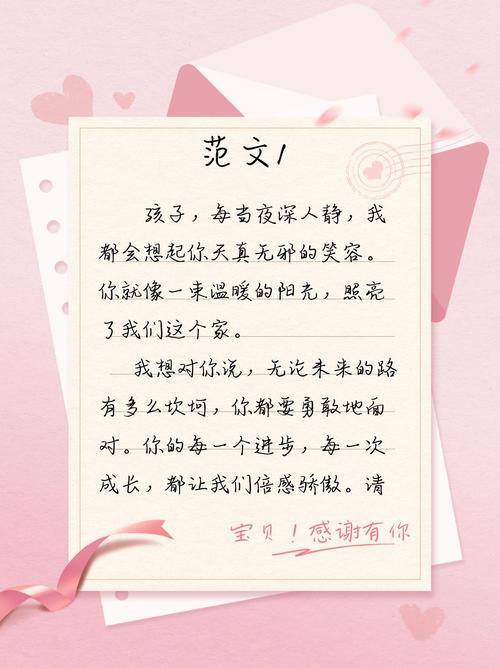 范文1
孩子，每当夜深人静，我
都会想起你天真无邪的笑容。
你就像一束温暖的阳光，照亮
了我们这个家。
我想对你说，无论未来的路
有多么坎坷，你都要勇敢地面
对。你的每一个进步，每一次
成长，都让我们倍感骄傲。请
宝贝！感谢有你